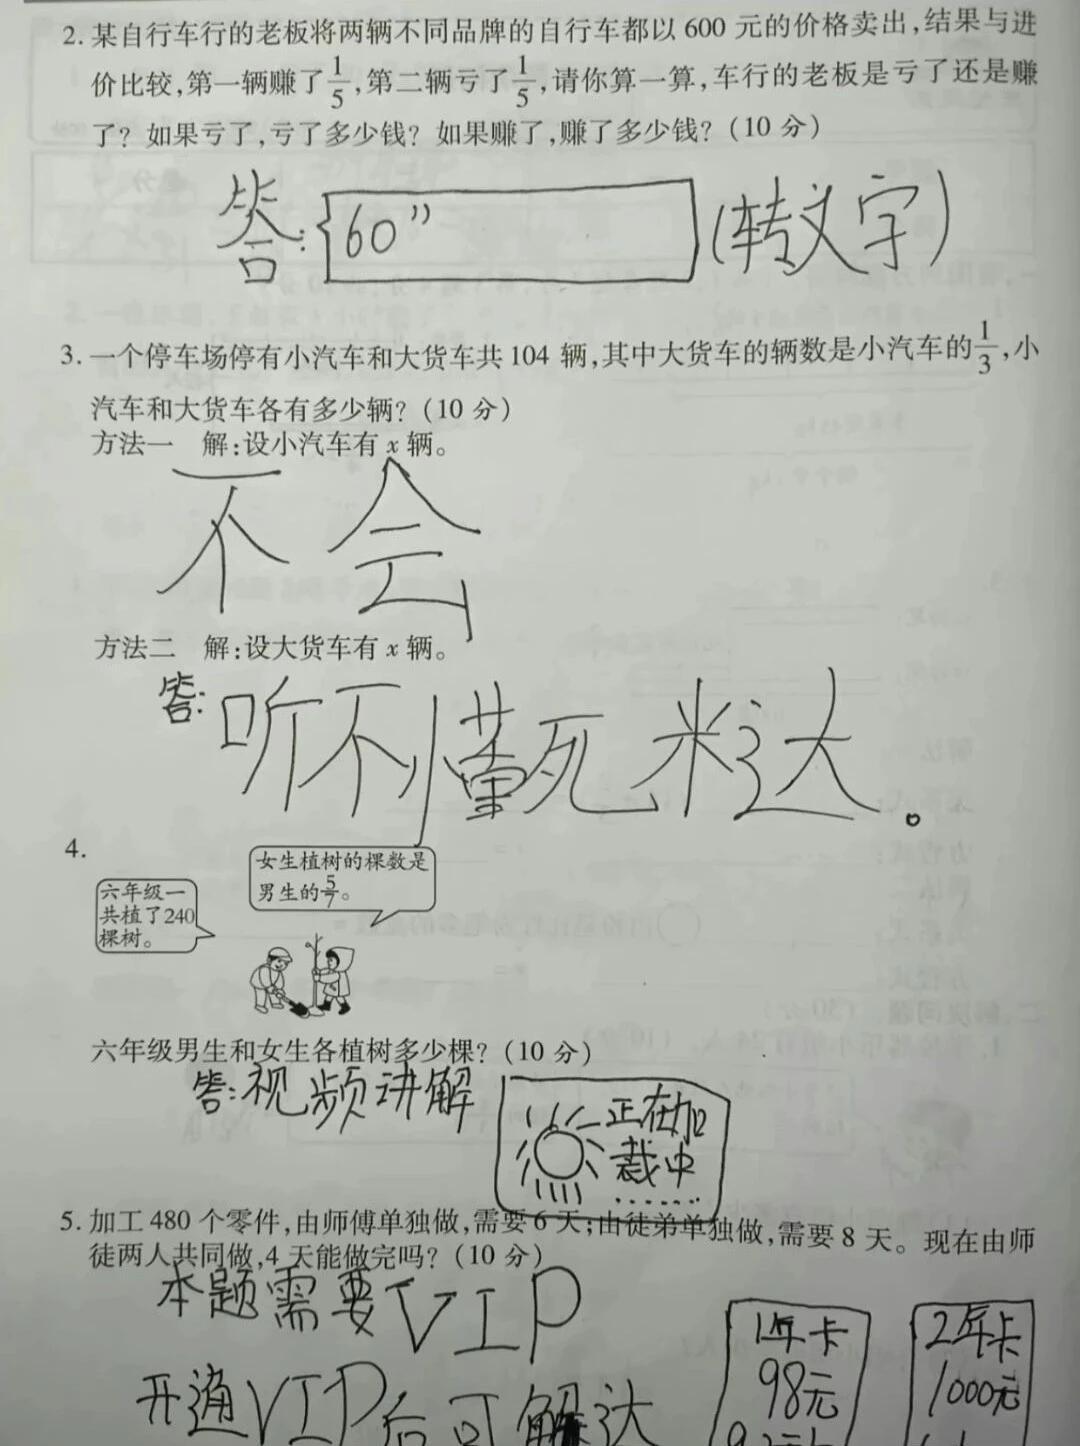 2. 某自行车行的老板将两辆不同品牌的自行车都以 600 元的价格卖出,结果与进
价比较,第一辆赚了1/5,第二辆亏了1/5,请你算一算,车行的老板是亏了还是赚
了？如果亏了,亏了多少钱？如果赚了,赚了多少钱？(10 分)
答: 60” (转文字)
3. 一个停车场停有小汽车和大货车共 104 辆,其中大货车的辆数是小汽车的1/3,小
汽车和大货车各有多少辆？(10 分)
方法一 解:设小汽车有 x 辆。
不会
方法二 解:设大货车有 x 辆。
答: 听不懂死米达。
4.
女生植树的棵数是
男生的5/7。
六年级一
共植了240
棵树。
六年级男生和女生各植树多少棵？(10 分)
答:视频讲解
正在加
载中
......
5. 加工 480 个零件,由师傅单独做,需要 6 天;由徒弟单独做,需要 8 天。现在由师
徒两人共同做,4 天能做完吗？(10 分)
本题需要VIP
开通VIP后可解达
1年卡
98元
2年卡
1000元